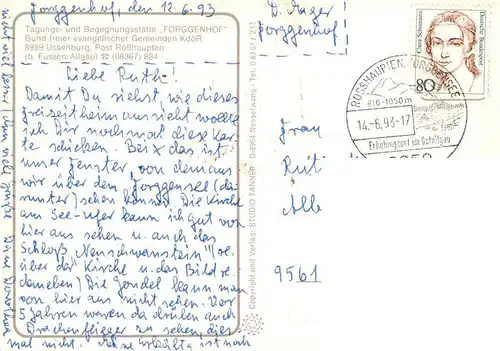 Forggenhof, den 12.6.93
Tagungs- und Begegnungsstätte „FORGGENHOF"
Bund freier evangelischer Gemeinden KdöR
8959 Ussenburg, Post Roßhaupten
(b. Füssen/Allgäu) ☎ (08367) 884
Liebe Ruth!
Damit Du siehst, wie dieses
Freizeitheim aussieht wollte
ich Dir nochmal diese Kar-
te schicken. Bei x das ist
unser Fenster, von dem aus
wir über den Forggensee (da-
runter) sehen können. Die Kirche
am See-ufer kann ich gut von
hier aus sehen u. auch das
Schloß „Neuschwanstein" (ge-
über der Kirche u. das Bild re.
daneben) Die Gondel kann man
von hier aus nicht sehen. Vor
5 Jahren waren da drüben auch
Drachenflieger zu sehen, dies-
mal nicht. Meine Erkältg ist noch
nicht viel besser. Dir viele Grüße Deine Dorothea
Copyright und Verlag: STUDIO TANNER · D-8964 Nesselwang · Tel. 0 83 61 / 211
D. Mager
Forggenhof!
Frau
Ruth
Alb
9561
Clara Schumann
Deutsche Bundespost
80
ROSSHAUPTEN, FORGGENSEE
816-1050 m
14.-6.93-17
Erholungsort im Ostallgäu